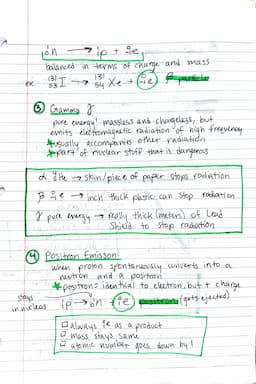 ¹₀n → ¹₁p + ⁰₋₁e
balanced in terms of charge and mass
ex ¹³¹₅₃I → ¹³¹₅₄Xe + ⁰₋₁e β particle
③ Gamma γ
pure energy! massless and chargeless, but
emits electromagnetic radiation of high frequency
★usually accompanies other radiation
★part of nuclear stuff that is dangerous
α ⁴₂He → skin/piece of paper stops radiation
β ⁰₋₁e → inch thick plastic can stop radiation
γ pure energy → really thick (meters) of Lead
Shield to stop radiation
④ Positron Emisson:
when proton spontaneously converts into a
neutron and a positron
★positron= identical to electron, but + charge
stays in nucleus
¹₁p → ¹₀n + ⁰₁e positron (gets ejected)
□ always ⁰₁e as a product
□ mass stays same
□ atomic number goes down by 1